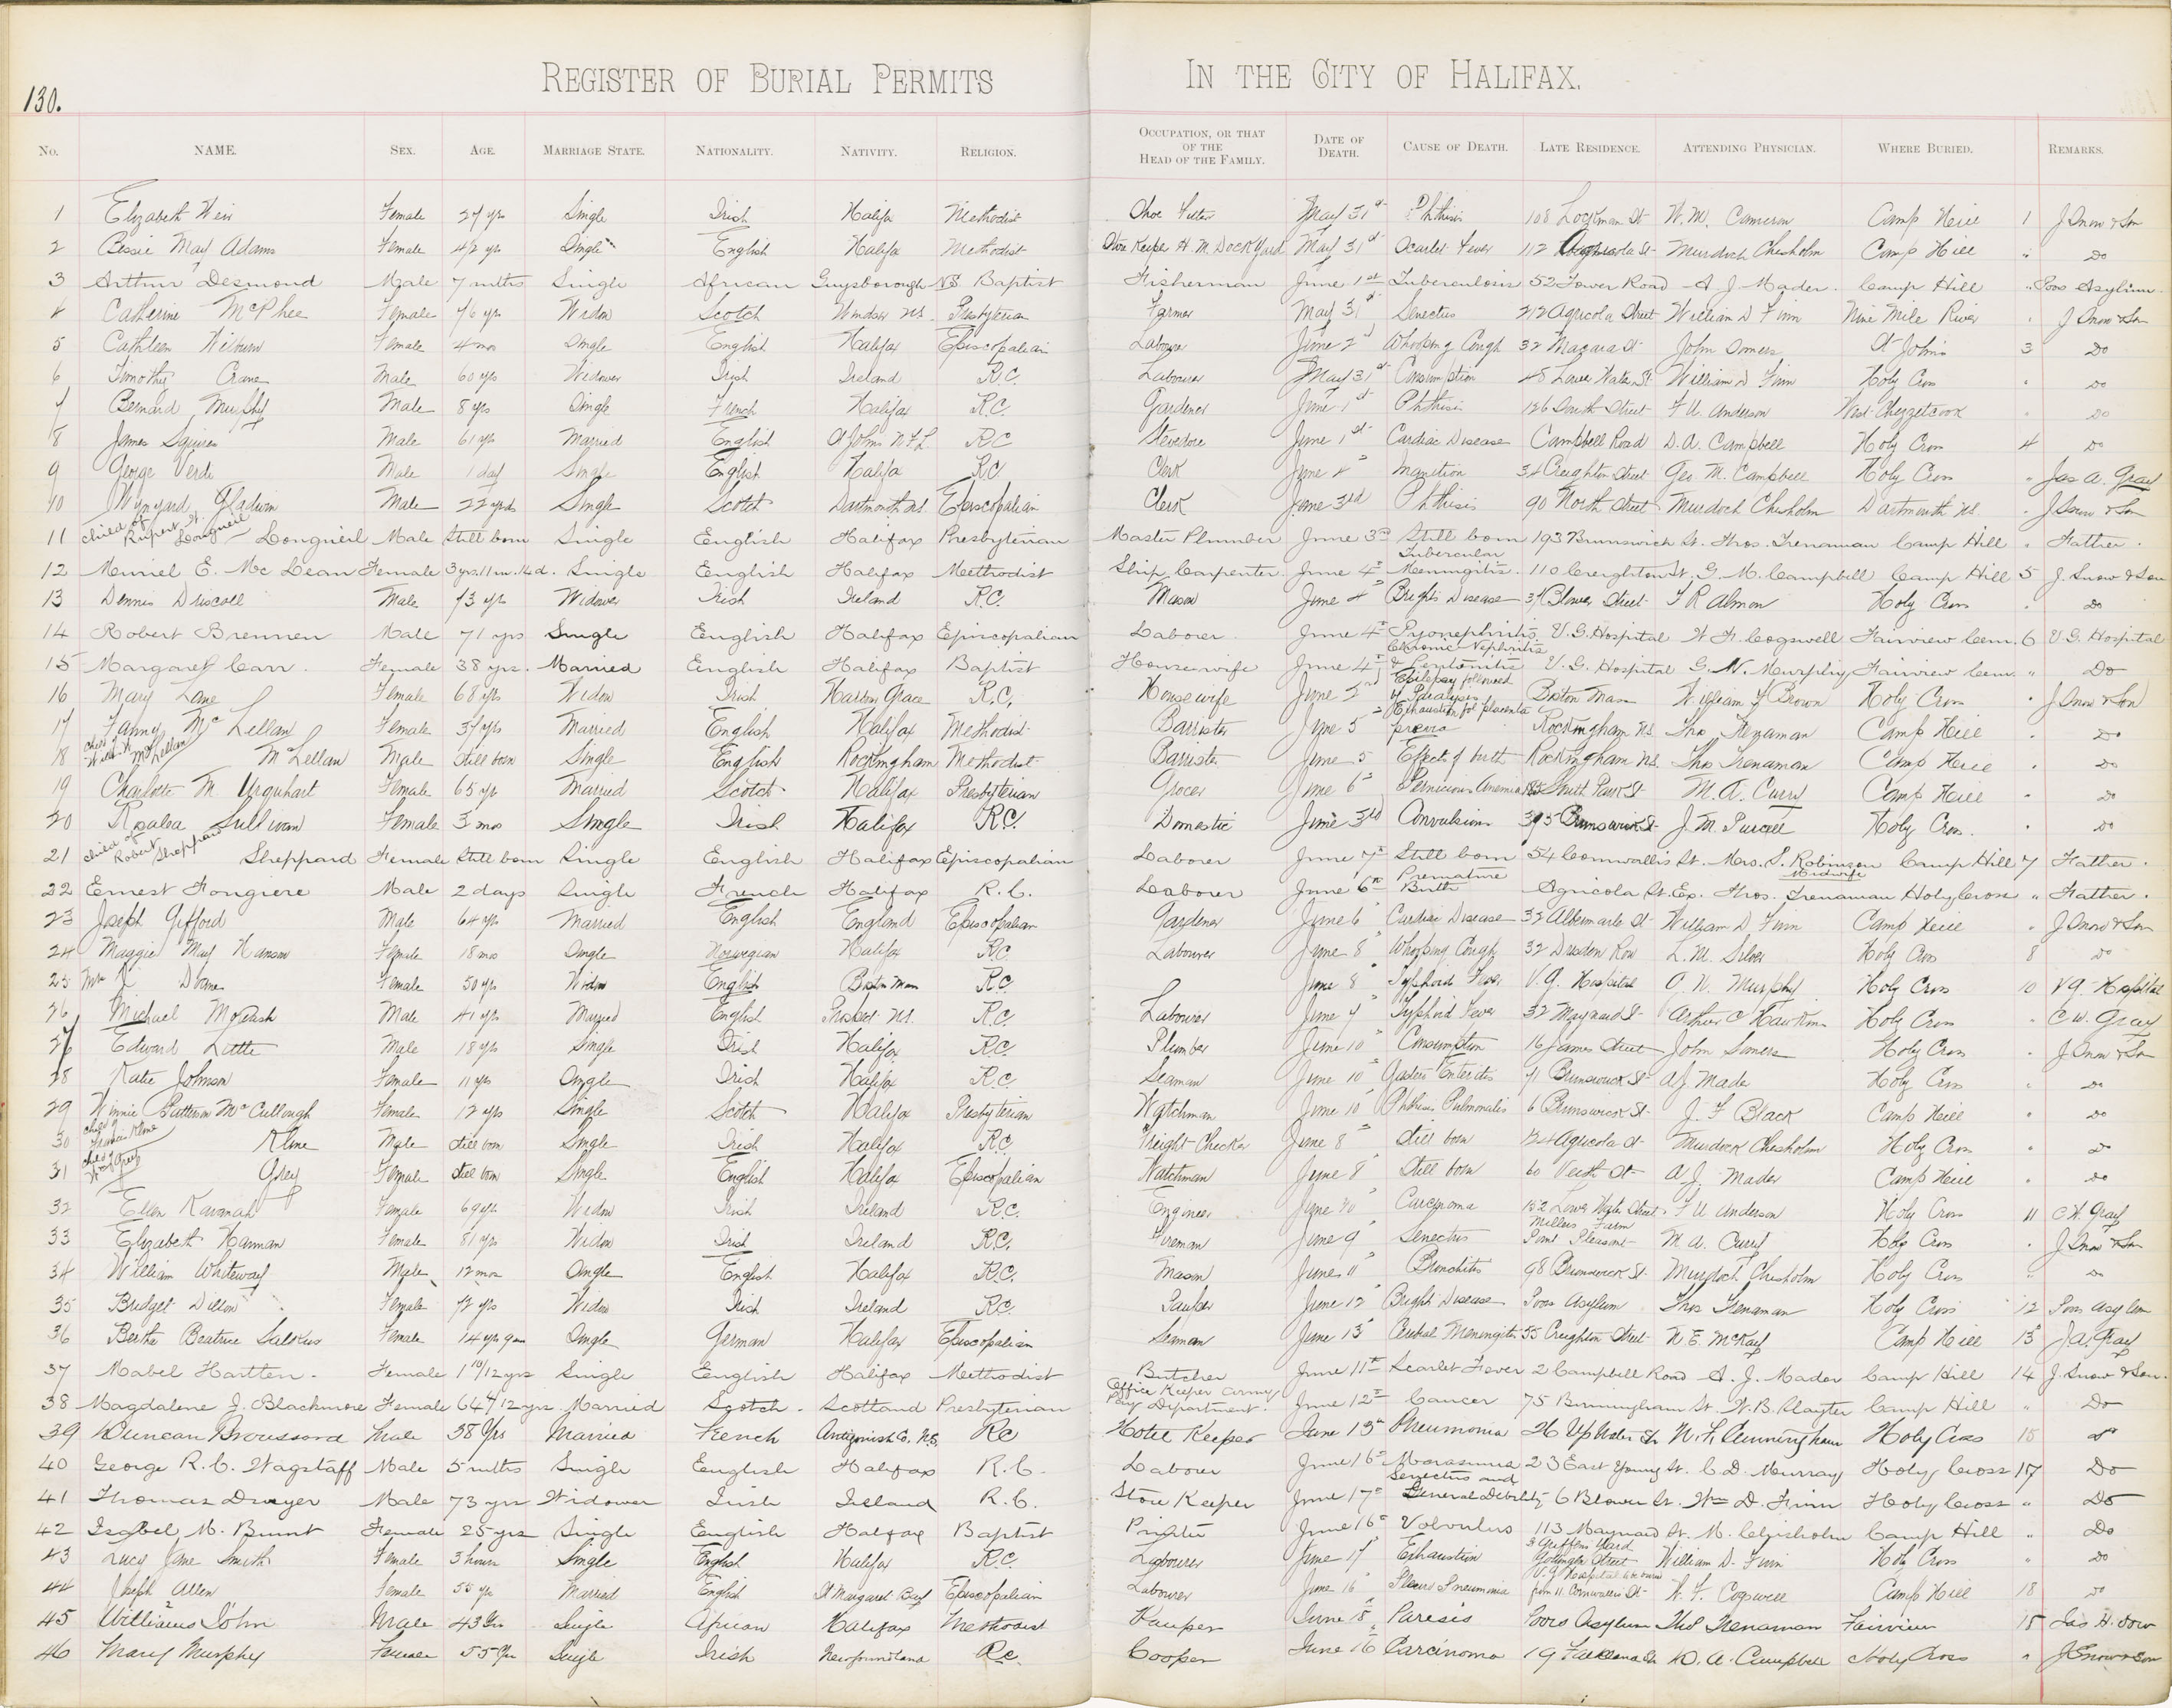 130.
REGISTER OF BURIAL PERMITS IN THE CITY OF HALIFAX.
No. NAME. SEX. AGE. MARRIAGE STATE. NATIONALITY. NATIVITY. RELIGION. OCCUPATION, OR THAT OF THE HEAD OF THE FAMILY. DATE OF DEATH. CAUSE OF DEATH. LATE RESIDENCE. ATTENDING PHYSICIAN. WHERE BURIED. REMARKS.
1 Elizabeth Weir Female 27 yrs Single Irish Halifx Methodist May 31st Phthisis 108 Lockman St W. M. Cameron Camp Hill 1 J Snow & Son
2 Bessie May Adams Female 4/2 yrs Single English Halifax Methodist Store Keeper H. M. Dock Yard May 31st Scarlet Fever 112 Agricola St Murdoch Chisholm Camp Hill " Do
3 Arthur Desmond Male 7 mths Single African Guysborough N.S. Baptist Fisherman June 1st Tuberculosis 52 Tower Road A. J. Mader. Camp Hill " Poor Asylum
4 Catherine McPhee Female 76 yrs Widow Scotch Windsor N.S. Presbyterian Farmer May 31st Senectus 212 Agricola Street William D Finn Nine Mile River " J Snow & Son
5 Cathleen Female 4 mos Single English Halifax Episcopalian Labourer June 2nd Whooping Cough 32 John Somers St Johns 3 Do
6 Timothy Crane Male 60 yrs Widower Irish Ireland R.C. Labourer May 31st Consumption 48 Lower Water St William D Finn Holy Cross " Do
7 Bernard Murphy Male 8 yrs Single French Halifax R.C. Gardener June 1st Phthisis 126 South Street F. U. Anderson West Chezzetcook " Do
8 James Squires Male 61 yrs Married English St Johns N.F.L. R.C Stevedore June 1st Cardiac Disease Campbell Road D. A. Campbell Holy Cross 4 Do
9 George Verdi Male 1 day Single English Halifax R.C. Clerk June 4" Inanition 34 Creighton Street Geo M. Campbell Holy Cross " Jas A. Gray
10 Wynyard Gladwin Male 22 yrs Single Scotch Dartmouth N.S. Episcopalian Clerk June 3rd Phthisis 90 North Street Murdoch Chisholm Dartmouth N.S. " J. Snow & Son
11 Child of Rupert W. Longueil Longueil Male Still born Single English Halifax Presbyterian Master Plumber June 3rd Still born 193 Brunswick St. Thos. Trenaman Camp Hill " Father.
12 Muriel E. McLean Female 3 yrs. 11 m. 14 d. Single English Halifax Methodist Ship Carpenter. June 4th Tubercular Meningitis. 110 Creighton St. G. M. Campbell Camp Hill 5 J. Snow & Son
13 Dennis Driscoll Male 73 yrs Widower Irish Ireland R.C. Mason June 4" Brights Disease 37 Blowers Street T R Almon Holy Cross " Do
14 Robert Brennen Male 71 yrs Single English Halifax Episcopalian Laborer. June 4th Pyonephritis V. G. Hospital W. H. Cogswell Fairview Cem. 6 V. G. Hospital
15 Margaret Carr. Female 38 yrs. Married English Halifax Baptist Housewife June 4th Chronic Nephritis & Peritonitis V. G. Hospital G. N. Murphy Fairview Cem. " Do
16 Mary Lane Female 68 yrs Widow Irish Harbor Grace R.C. Housewife June 2nd Epilepsy followed by Paralysis Boston Mass William J Brown Holy Cross " J Snow & Son
17 Fanny McLellan Female 37 yrs Married English Halifax Methodist Barrister June 5" Exhaustion fol placenta previa Rockingham N.S. Thos Trenaman Camp Hill " Do
18 Child of McLellan McLellan Male Still born Single English Rockingham Methodist Barrister June 5 Effects of birth Rockingham N.S. Thos Trenaman Camp Hill " Do
19 Charlotte M Urquhart Female 65 yrs Married Scotch Halifax Presbyterian Grocer June 6" Pernicious Anemia South Park St M. A. Curry Camp Hill " Do
20 Rosalea Sullivan Female 3 mos Single Irish Halifax R.C. Domestic June 3rd Convulsions 395 Brunswick St J. M. Purcell Holy Cross. " Do
21 Child of Robert Sheppard Sheppard Female Still born Single English Halifax Episcopalian Laborer June 7th Still born 54 Cornwallis St. Mrs. S. Robinson Midwife Camp Hill 7 Father.
22 Ernest Fougiere Male 2 days Single French Halifax R. C. Laborer June 6th Premature Birth Agricola St. Ex. Thos. Trenaman Holy Cross " Father.
23 Joseph Gifford Male 64 yrs Married English England Episcopalian Gardener June 6" Cardiac Disease 32 Albemarle St William D Finn Camp Hill " J Snow & Son
24 Maggie May Hanson Female 18 mos Single Norwegian Halifax R.C. Labourer June 8" Whooping Cough 32 Dresden Row L. M. Silver Holy Cross 8 Do
25 Mrs Doane Female 50 yrs Widow English Boston Mass R.C. June 8" Typhoid Fever V. G. Hospital Murphy Holy Cross 10 V G. Hospital
26 Michael Male 41 yrs Married English Prospect N.S. R.C. Labourer June 7" Typhoid Fever 32 Maynard St Arthur C Hawkins Holy Cross " C W. Gray
27 Edward Little Male 18 yrs Single Irish Halifax R.C. Plumber June 10" Consumption 16 James Street John Somers Holy Cross " J. Snow & Son
28 Katie Johnson Female 11 yrs Single Irish Halifax R.C. Seaman June 10" Gastro Enteritis 71 Brunswick St A J. Mader Holy Cross " Do
29 Winnie Patterson McCullough Female 12 yrs Single Scotch Halifax Presbyterian Watchman June 10" Phthisis Pulmonalis 6 Brunswick St J. F Black Camp Hill " Do
30 Child of Francis Kline Kline Male Still born Single Irish Halifax R.C. Freight Checker June 8" Still born Agricola St Murdoch Chisholm Holy Cross " Do
31 Child of Grey Female Still born Single English Halifax Episcopalian Watchman June 8" Still born 60 Veith St A. J. Mader Camp Hill " Do
32 Ellen Kavanah Female 69 yrs Widow Irish Ireland R.C. Engineer June 10" Carcinoma 152 Lower Water Street F U Anderson Holy Cross 11 C W. Gray
33 Elizabeth Hannan Female 81 yrs Widow Irish Ireland R.C. Fireman June 9" Senectus Millers Farm Point Pleasant M A. Curry Holy Cross " J Snow & Son
34 William Whiteway Male 12 mos Single English Halifax R.C. Mason June 11" Bronchitis 98 Brunswick St. Murdoch Chisholm Holy Cross " Do
35 Bridget Dillon Female 72 yrs Widow Irish Ireland R.C. Pauper June 12" Bright Disease Poors Asylum Thos Trenaman Holy Cross 12 Poors Asylum
36 Bertha Beatrice Female 14 yrs 9 mos Single German Halifax Episcopalian Seaman June 13" Cerebral Meningitis 55 Creighton Street N. E. McKay Camp Hill 13 J. A. Gray
37 Mabel Hartten. Female 1 10/12 yrs Single English Halifax Methodist Butcher June 11th Scarlet Fever 2 Campbell Road A. J. Mader Camp Hill 14 J. Snow & Son.
38 Magdalene J. Blackmore Female 64 4/12 yrs Married Scotch. Scotland Presbyterian Office Keeper Army Pay Department. June 12th Cancer 75 Birmingham St. W. B. Slayter Camp Hill " Do
39 Duncan Broussard Male 38 Yrs Married French Antigonish Co. N.S. RC Hotel Keeper June 13th Pneumonia 26 Up Water St W. F. Cunningham Holy Cross 15 do
40 George R. C. Wagstaff Male 5 mths Single English Halifax R. C. Laborer June 16th Marasmus 23 East Young St. C. D. Murray Holy Cross 17 Do
41 Thomas Dwyer Male 73 yrs Widower Irish Ireland R. C. Store Keeper June 17th Senectus and General Debility 6 Blower St. Wm D. Finn Holy Cross " Do
42 Isabel M. Brunt Female 25 yrs Single English Halifax Baptist Printer June 16th Volvulus 113 Maynard St. M. Chisholm Camp Hill " Do
43 Lucy Jane Smith Female 3 hours Single English Halifax R.C. Labourer June 17 Exhaustion 3 Griffins Yard Gottingen Street William D. Finn Holy Cross " Do
44 Joseph Allen Female 55 yrs Married English St Margaret Bay Episcopalian Labourer June 16" Pleuro Pneumonia V. G Hospital from 11 Cornwallis St W. F. Cogswell Camp Hill 18 Do
45 Williams John Male 43 Yrs Single African Halifax Methodist Pauper June 18" Paresis Poors Asylum Thos Trenaman Fairview 18 Jas H. Dow
46 Mary Murphy Female 55 Yrs Single Irish Newfoundland RC. Cooper June 16" Carcinoma 19 Falkland St D. A. Campbell Holy Cross " J Snow & Son